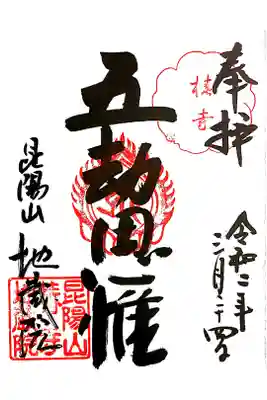 奉拝
椿寺
令和二年
三月二十四日
五劫思惟
昆陽山 地蔵院
昆陽山
地蔵院